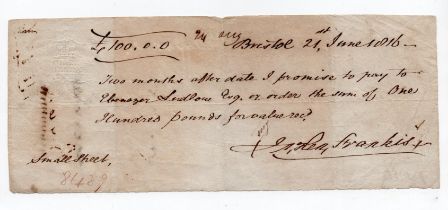 £100.0.0 24 Aug Bristol 21st June 1816
Two months after date I promise to pay to
Ebenezer Ludlow Esq. or order the sum of One
Hundred pounds for value recd
Frankis
Small Street,
8489